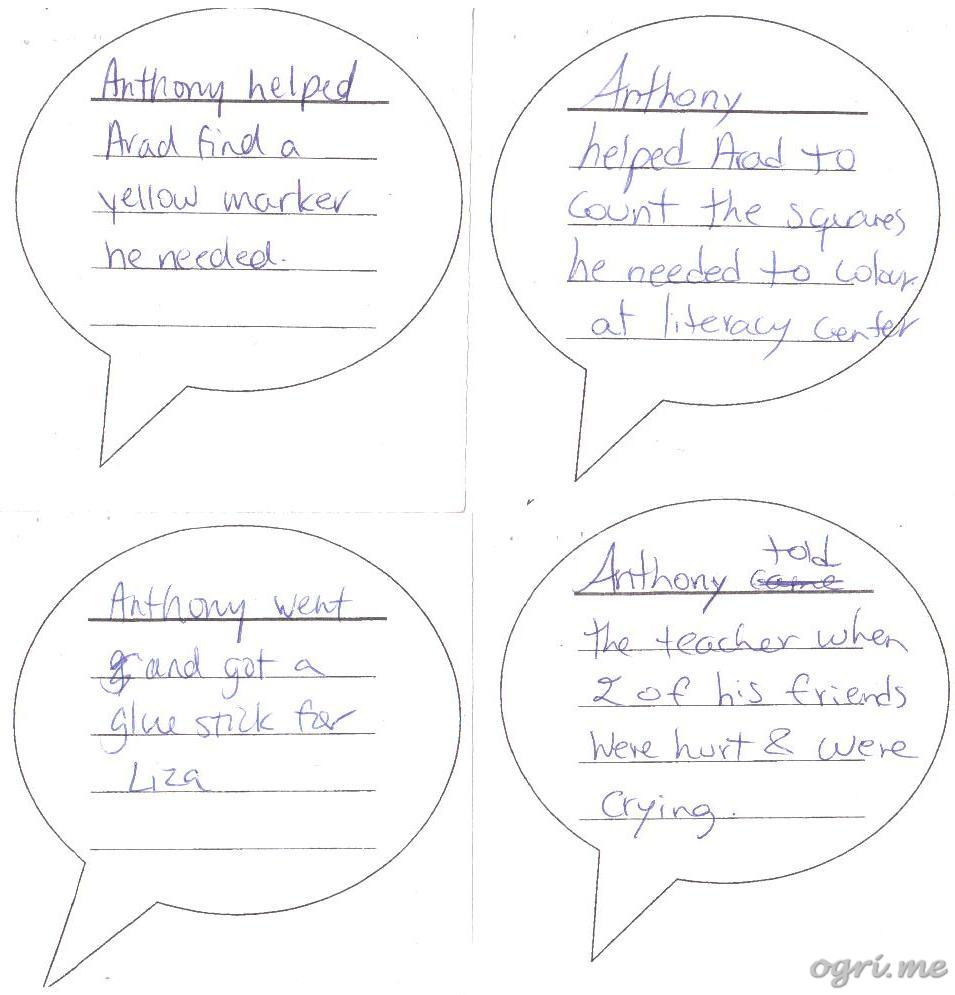 Anthony helped
Arad find a
yellow marker
he needed.
Anthony
helped Arad to
count the squares
he needed to colour
at literacy center
Anthony went
and got a
glue stick for
Liza
Anthony told
the teacher when
2 of his friends
were hurt & were
crying.
ogri.me